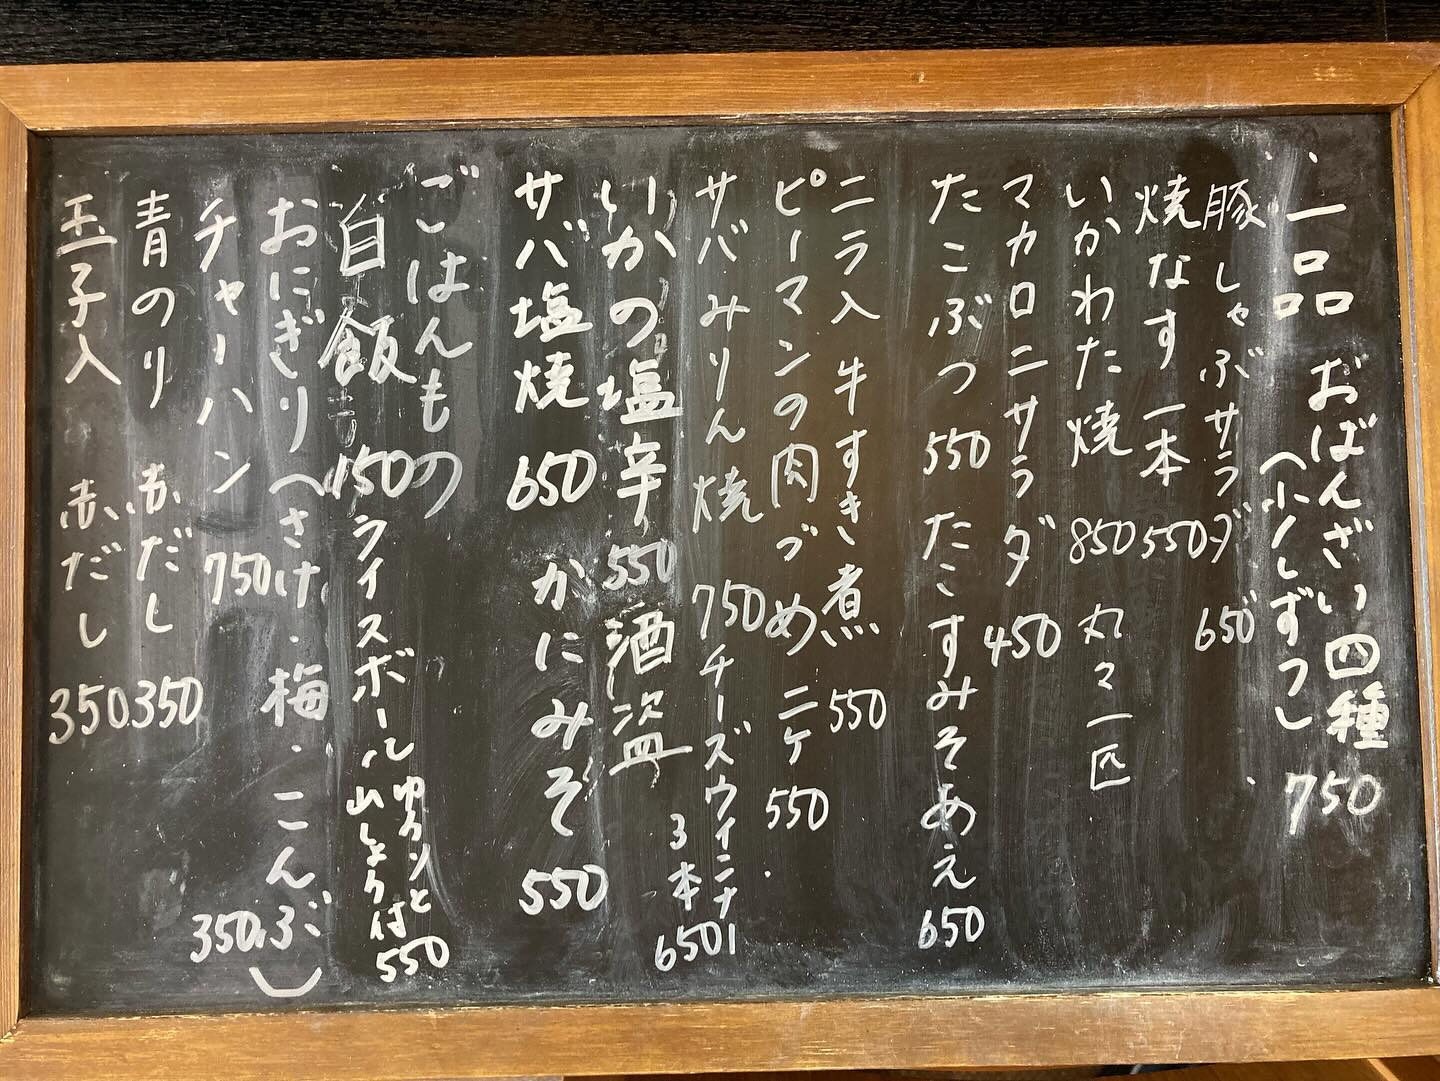 一品 おばんざい四種 750
(少しずつ)
豚しゃぶサラダ 650
焼なす 一本 550
いかわた焼 850 丸々一匹
マカロニサラダ 450
たこぶつ 550 たこすみそあえ 650
ニラ入 牛すき煮 550
ピーマンの肉づめ 二ケ 550
サバみりん焼 750 チーズウインナー
3本 650
いかの塩辛 550 酒盗
サバ塩焼 650 かにみそ 550
ごはんもの
白飯 150 ライスボール
と山しょう付 550
おにぎり(さけ・梅・こんぶ) 350
チャーハン 750
青のり 赤だし 350
玉子入 赤だし 350